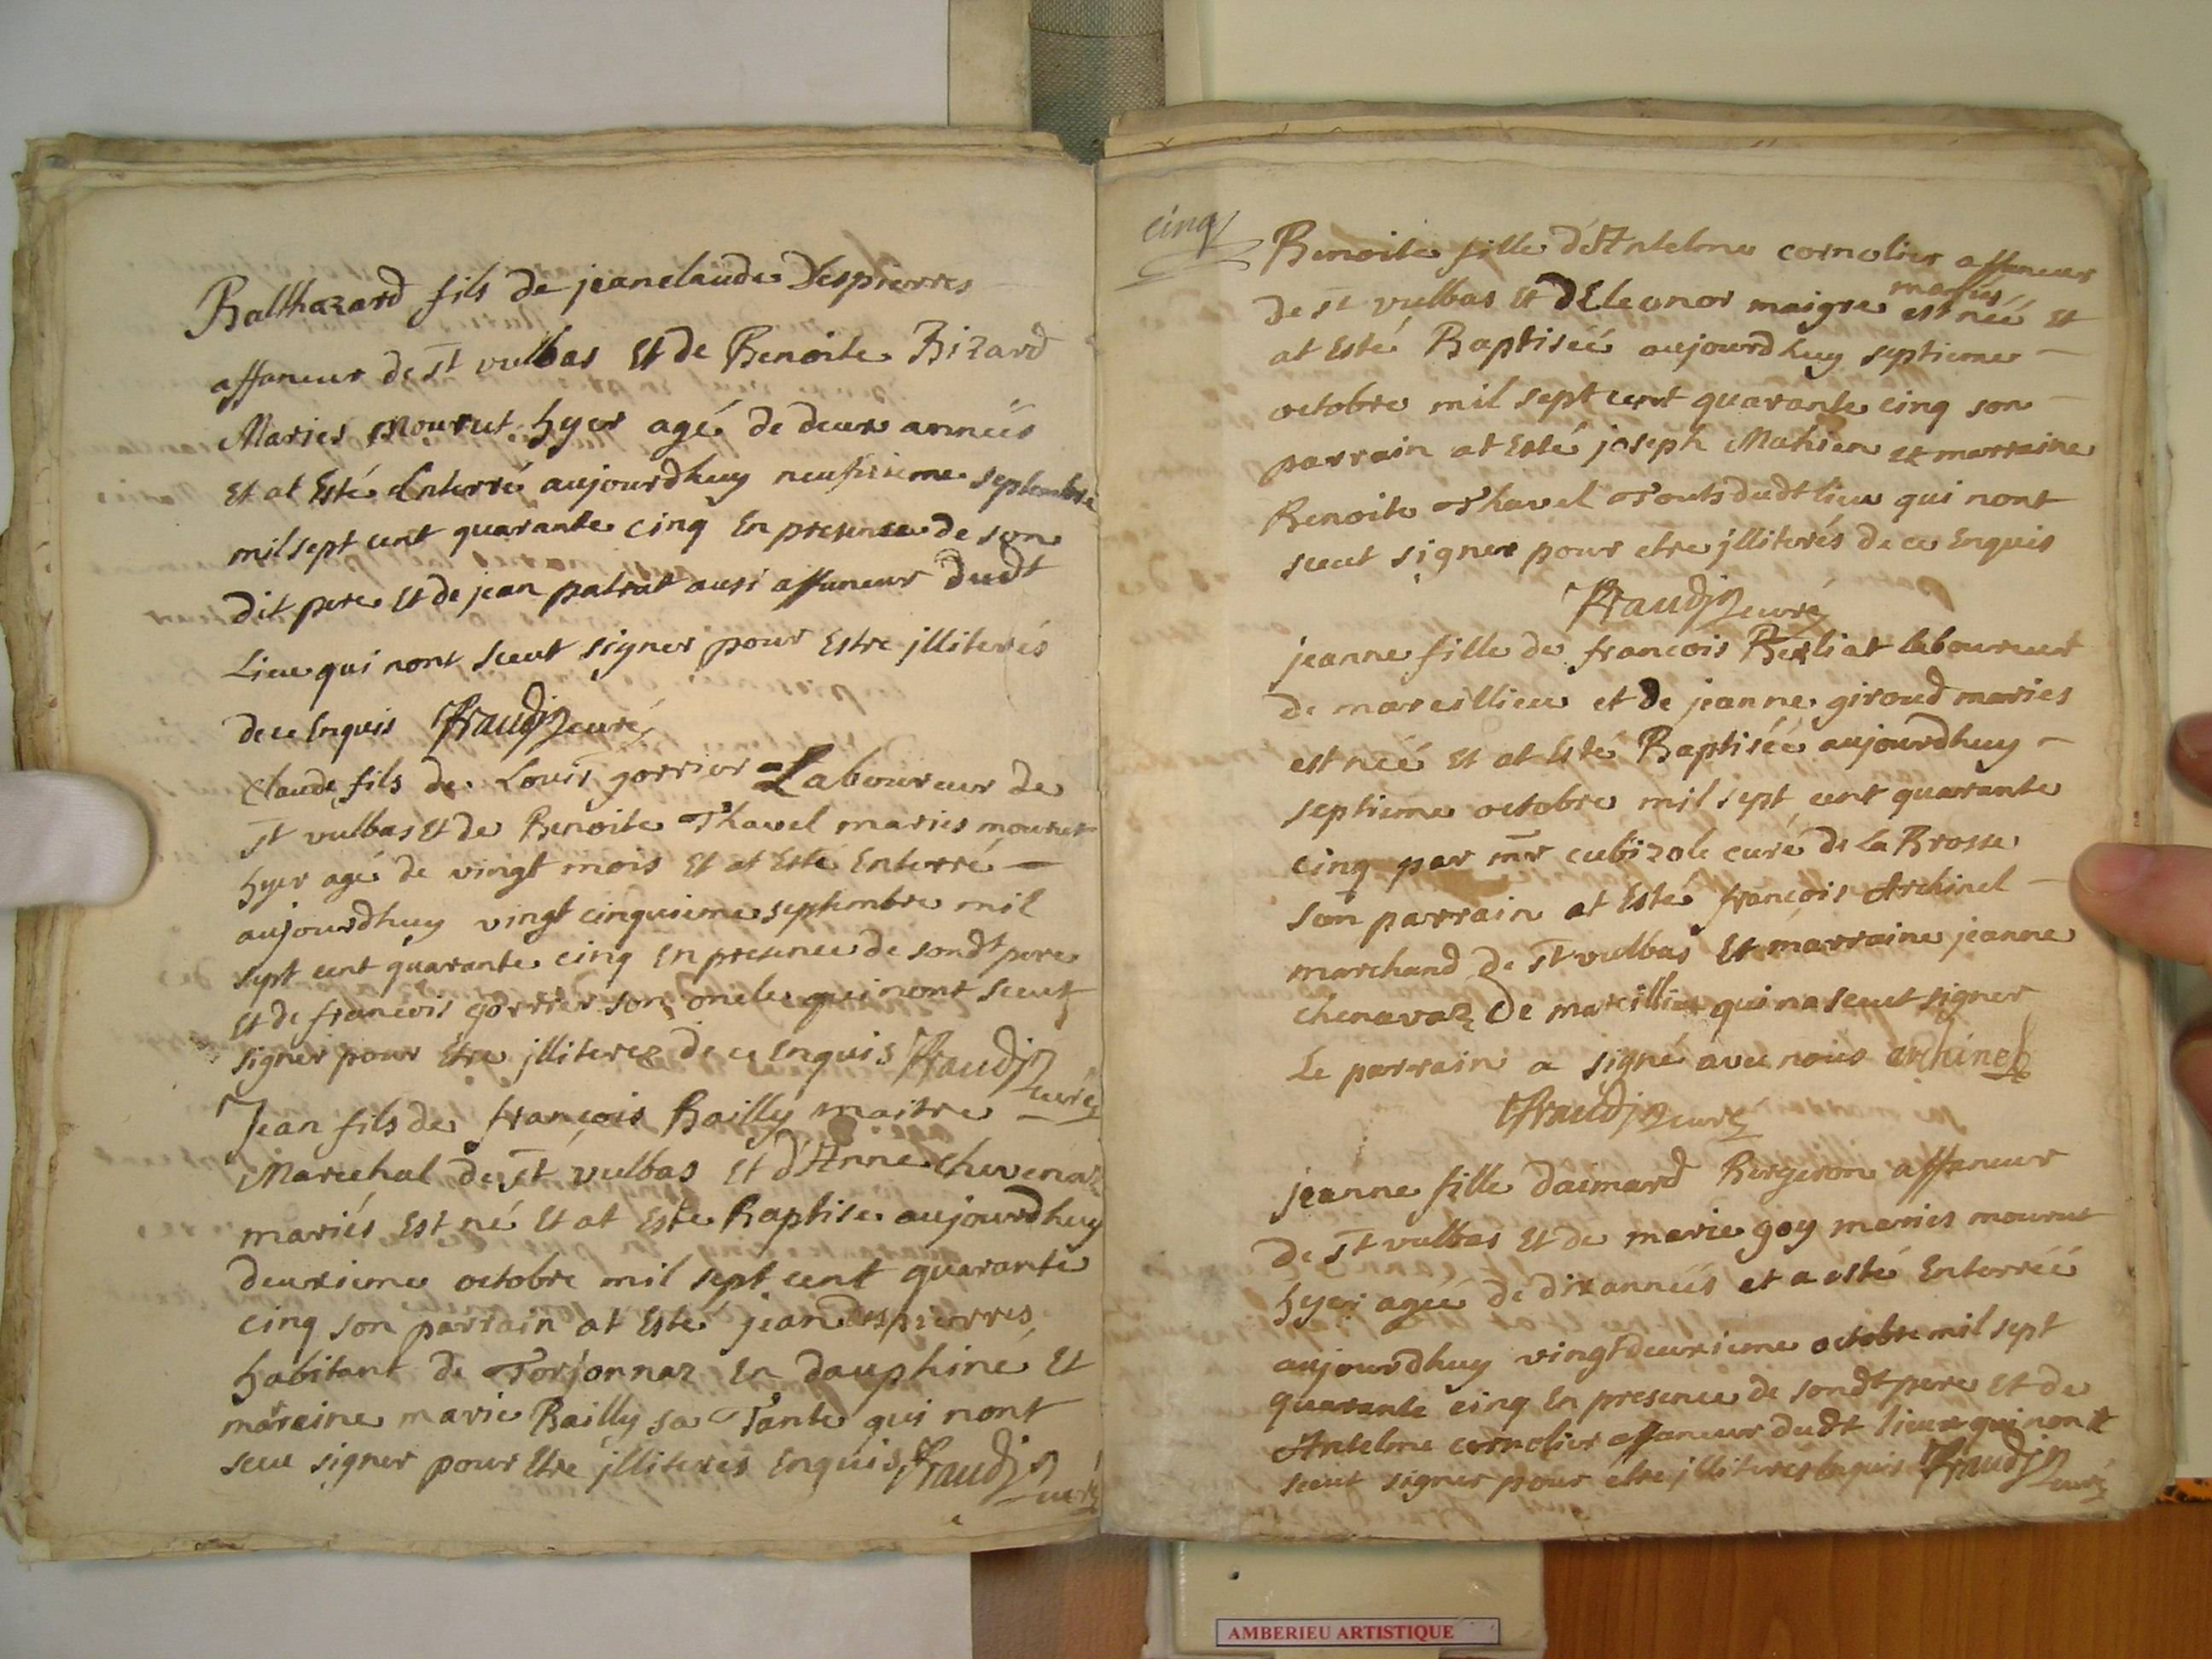 Balthazard fils de jeanclaude Despierres
affaneur de st vulbas Et de Benoite Bizard
Mariés Mourut hyer agé de deux anneés
Et at Esté Enterré aujourdhuy neufvieme septembre
mil sept cent quarante cinq En presence de son
dit pere Et de jean patrat ausi affaneur dudt
Lieu qui nont sceut signer pour Estre jlliterés
de ce Enquis Fraudin curé
claude fils de Louis gorrier Laboureur de
st vulbas Et de Benoite Thavel maries mourut
hyer agé de vingt mois Et at Esté Enterré
aujourdhuy vingt cinquieme septembre mil
sept cent quarante cinq En presence de sondt pere
Et de francois gorrier son oncle qui nont sceut
signer pour Etre jlliterez de ce Enquis Fraudin
curé
Jean fils de françois Bailly maitre
Marechal de st vulbas Et d'Anne chevenaz
mariés Est né Et at Esté Baptise aujourdhuy
deuxieme octobre mil sept cent quarante
cinq son parrain at Esté jean Despierres
habitant de Torjonnaz En dauphine Et
marraine marie Bailly sa Tante qui nont
sceu signer pour Etre jlliterés Enquis Fraudin
curé
cinq
Benoite fille d'Antelme cornolier affaneur
mariés
de st vulbas Et dEleonor maigre est neé Et
at Esté Baptiseé aujourdhuy septieme
octobre mil sept cent quarante cinq son
parrain at Esté joseph Mathieu et marraine
Benoite Thavel Touts dudt lieu qui nont
sceut signer pour etre jlliterés de ce Enquis
Fraudin curé
jeanne fille de francois Berliat laboureur
de marcillieu et de jeanne giroud maries
est neé Et at Esté Baptiseé aujourdhuy
septieme octobre mil sept cent quarante
cinq par mr cubizole curé de La Brosse
son parrain at Esté françois Archinel
marchand de st vulbas Et marraine jeanne
chenavaz de marcillieu qui na sceut signer
Le parrain a signé avec nous archinel
Fraudin curé
jeanne fille daimard Bergeron affaneur
de st vulbas Et de marie goy maries mourut
hyer ageé de dix anneés et a esté Enterreé
aujourdhuy vingtdeuxieme octobre mil sept
quarante cinq En presence de sondt pere Et de
Antelme cornolier affaneur dudt lieu qui nont
sceut signer pour etre jlliterés Enquis Fraudin
curé
AMBERIEU ARTISTIQUE